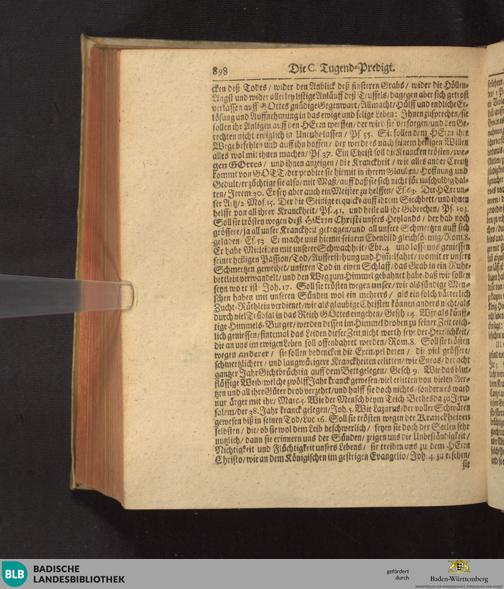 898 Die C. Tugend-Predigt.
cken deß Todes / wider den Anblick deß finsteren Grabs / wider die Höllen-
Angst und wider allerley listige Anläuff deß Teuffels / dagegen aber sich getrost
verlassen auff GOttes gnädige Gegenwart / Allmacht / Hülff und endliche Er-
lösung und Auffnehmung in das ewige und selige Leben: Ihnen zusprechen / sie
sollen ihr Anligen auff den HErrn werffen / der wird sie versorgen und den Ge-
rechten nicht ewiglich in Unruhe lassen / Ps. 55. Sie sollen dem HErrn ihre
Wege befehlen und auff ihn hoffen / der werde es nach seinem heiligen Willen
alles wol mit ihnen machen / Ps. 37. Ein Christ soll die Krancken trösten / we-
gen GOttes / und ihnen anzeigen / die Kranckheit / wie alles ander Creutz
kommt von GOTT / der probiere sie hiemit in ihrem Glauben / Hoffnung und
Gedult / er züchtige sie also / mit Maß / auff daß sie sich nicht für unschuldig hal-
ten / Jerem. 30. Er sey aber auch ein Meister zu helffen / Es. 63. Der HErr un-
ser Artzt / 2. Mos. 15. Der die Seinige erquicke auff ihrem Siechbett / und ihnen
helffe von all ihrer Kranckheit / Ps. 41. und heile all ihr Gebrechen / Ps. 103.
Soll sie trösten wegen deß HErrn Christi unsers Heylands / der hab noch
grössere / ja all unser Kranckheit getragen / und all unsere Schmertzen auff sich
geladen / Es. 53. Er mache uns hiemit seinem Ebenbild gleichförmig / Rom. 8.
Er habe Mitleiden mit unserer Schwachheit / Ebr. 4. und lasse uns geniessen
seiner heiligen Passion / Tod / Aufferstehung und Himmelfahrt / womit er unsere
Schmertzen geweihet / unseren Tod in einen Schlaff / das Grab in ein Ruhe-
bettlein verwandelt / und den Weg zum Himmel gebahnet habe daß wir sollen
seyn wo er ist / Joh. 17. Soll sie trösten wegen unser / wie als sündige Men-
schen haben mit unseren Sünden wol ein mehrers / als ein solch väterlich
Zucht-Rüthlein verdienet / wir als glaubige Christen können anders nicht als
durch viel Trübsal in das Reich GOttes eingehen / Gesch. 14. Wir als künff-
tige Himmels-Burger / werden dessen im Himmel droben zu seiner Zeit reich-
lich geniessen / sintemal das Leiden dieser Zeit nicht werth sey der Herrlichkeit /
die an uns im ewigen Leben soll offenbahret werden / Rom. 8. Soll sie trösten
wegen anderer / sie sollen bedencken die Exempel deren / die viel grössere /
schmertzlichere / und langwürigere Kranckheiten erlitten / wie Eneas / der acht
gantzer Jahr Gichtbrüchig auff dem Bett gelegen / Gesch. 9. Wie das blut-
flüssige Weib / welche zwölff Jahr kranck gewesen / viel erlitten von vielen Aerz-
ten und all ihre Güter drob verzehrt / und halff sie doch nichts / sondern es ward
nur ärger mit ihr / Marc. 5. Wie der Mensch beym Teich Bethesda zu Jeru-
salem / der 38. Jahr kranck gelegen / Joh. 5. Wie Lazarus / der voller Schwären
gewesen biß in seinen Tod / Luc. 16. Soll sie trösten wegen der Kranckheiten
selbsten / die / ob sie wol dem Leib beschwerlich / seyen sie doch der Seelen sehr
nutzlich / dann sie erinnern uns der Sünden / zeigen uns die Unbeständigkeit /
Nichtigkeit und Flüchtigkeit unsers Lebens / sie treiben uns zu dem HErrn
Christo / wie an dem Königischen im gestrigen Evangelio / Joh. 4. zu ersehen /
sie
BLB BADISCHE
LANDESBIBLIOTHEK
gefördert
durch
Baden-Württemberg